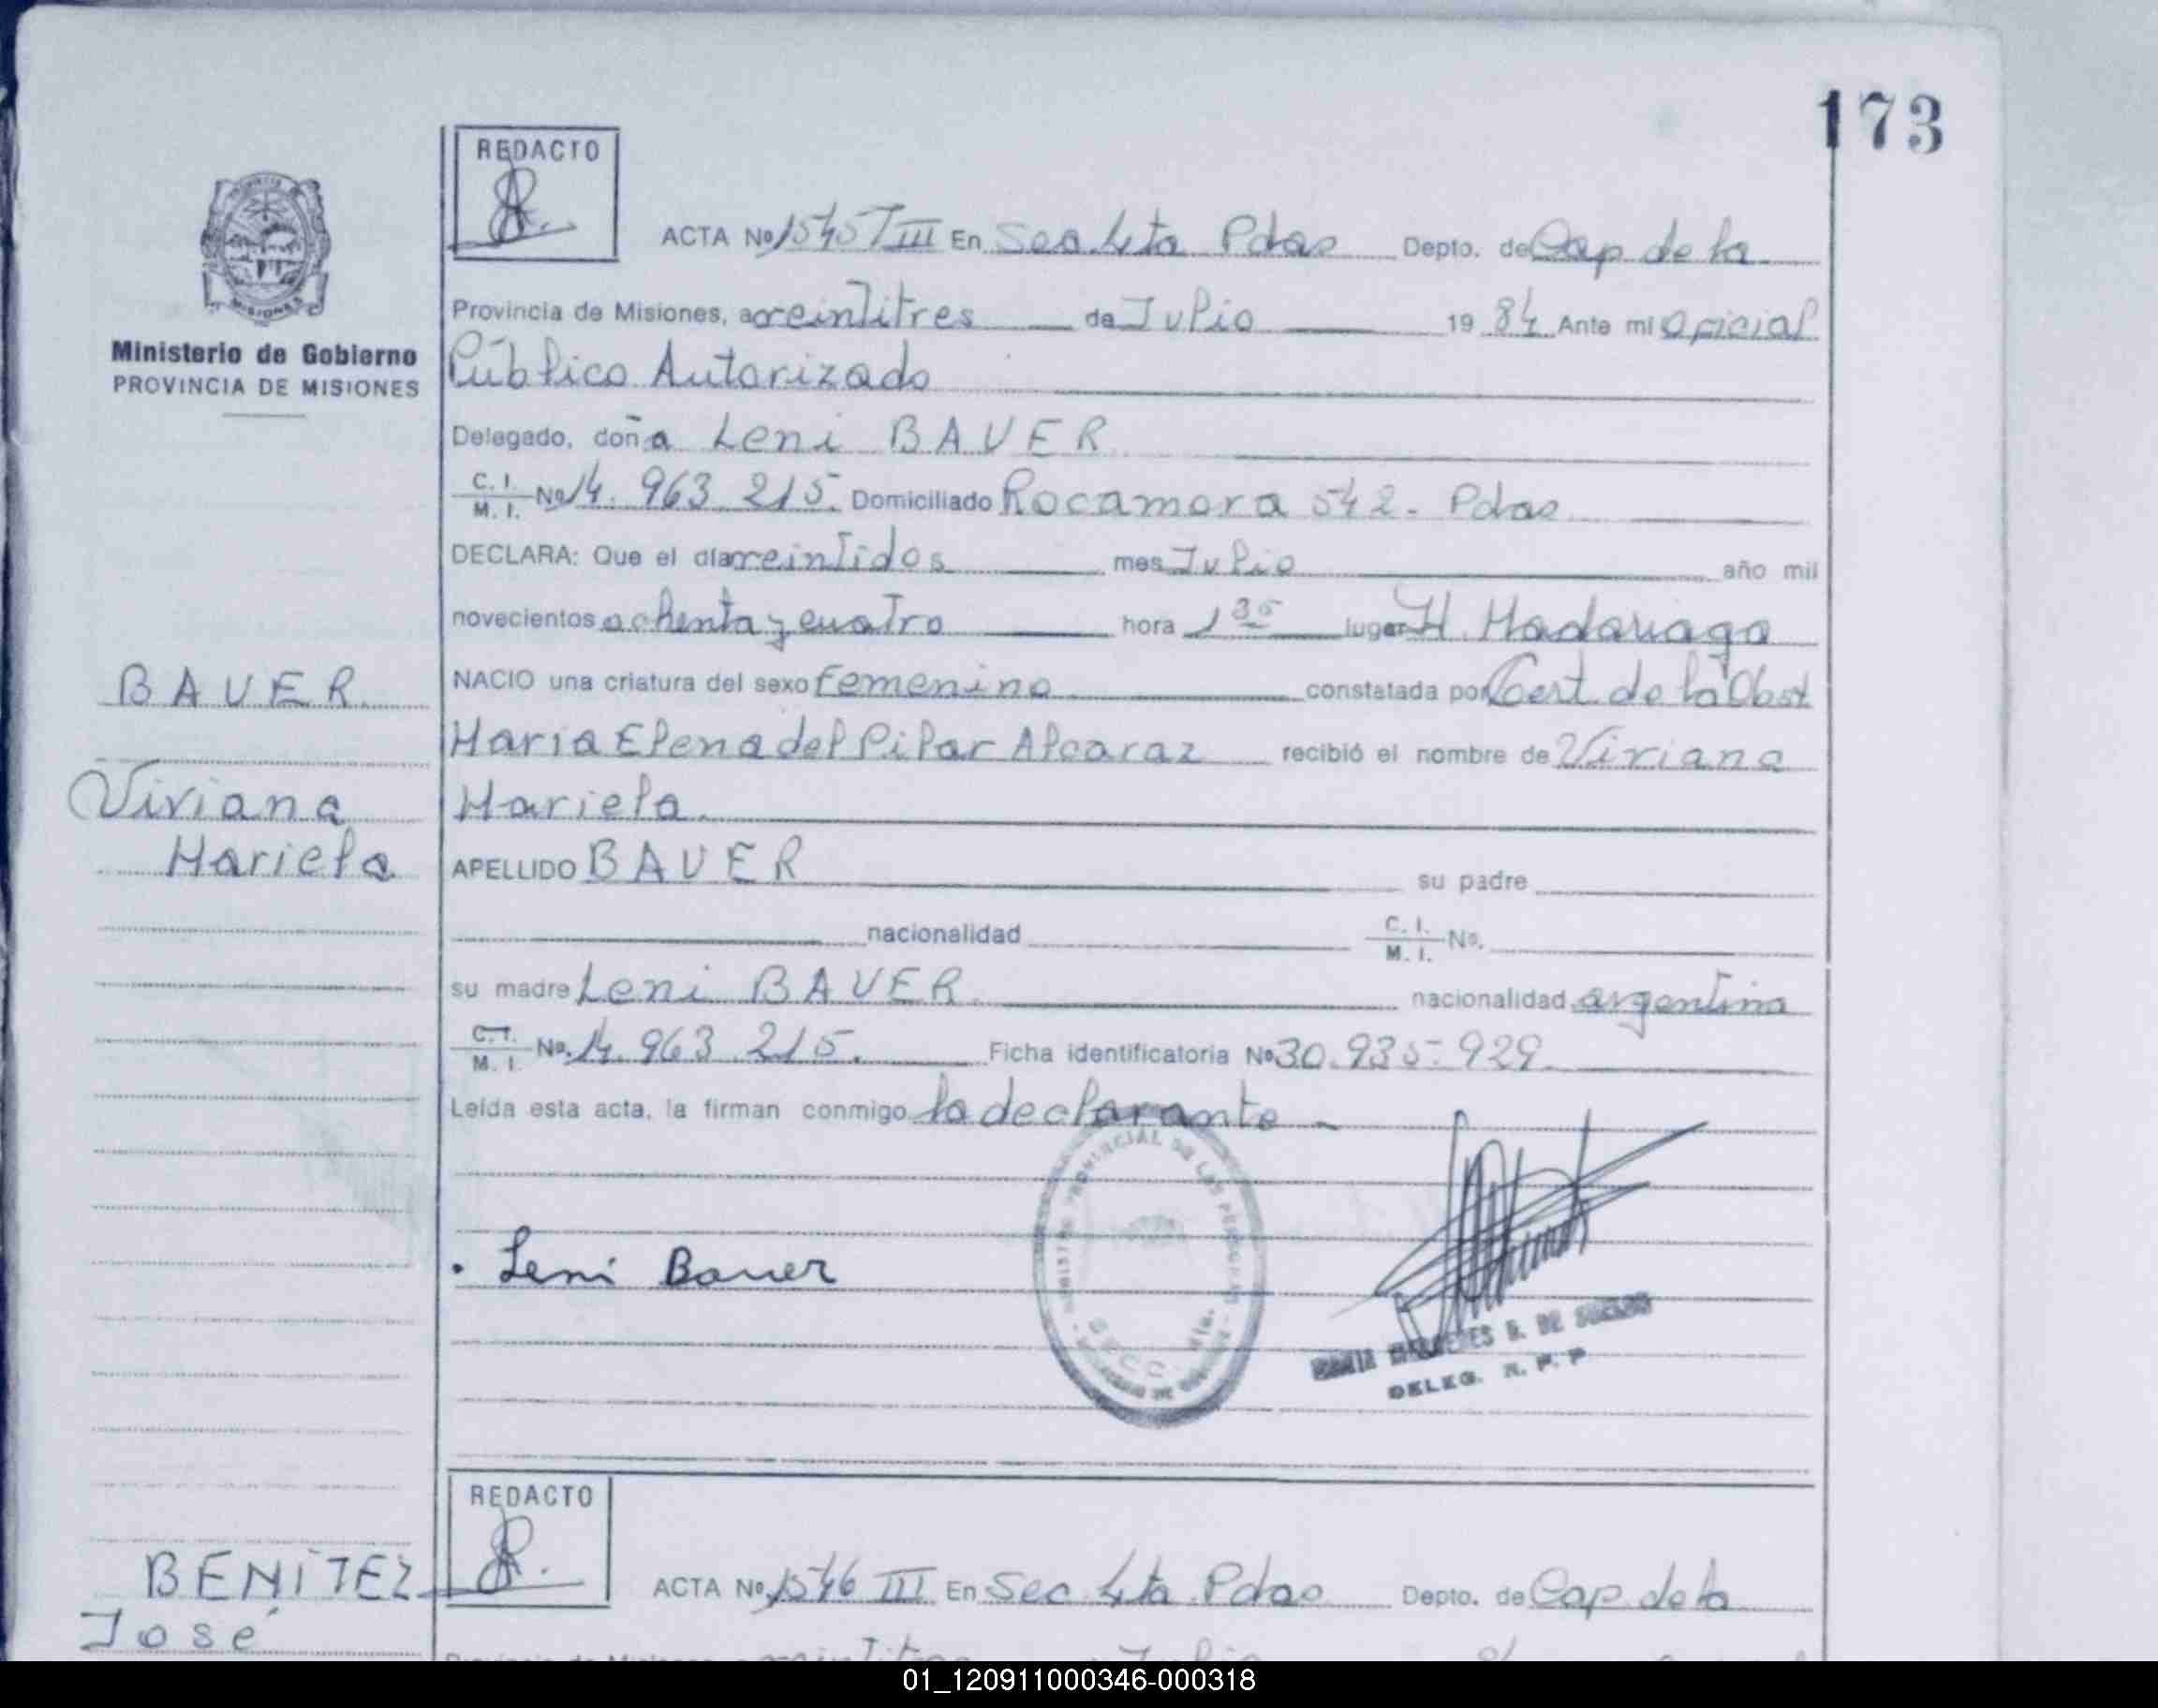 173
REDACTO
ACTA Nº 1545 T III En Sec. 4ta Pdas Depto. de Cap de la
Provincia de Misiones, a veintitres de Julio 19 84 Ante mi Oficial
Ministerio de Gobierno
PROVINCIA DE MISIONES
Público Autorizado
Delegado, doña Leni BAUER
C. I. M. I. Nº 14. 963 215. Domiciliado Rocamora 542 - Pdas
DECLARA: Que el día veintidos mes Julio año mil
novecientos ochenta y cuatro hora 1 35 lugar H. Madariaga
BAUER
NACIO una criatura del sexo femenino constatada por Cert. de la Obst
Maria Elena del Pilar Alcaraz recibió el nombre de Viviana
Viviana
Mariela
Mariela
APELLIDO BAUER su padre
nacionalidad C. I. M. I. Nº.
su madre Leni BAUER nacionalidad argentina
C. I. M. I. Nº. 14. 963 215. Ficha identificatoria Nº 30.935-929
Leída esta acta, la firman conmigo la declarante
PROVINCIAL DE LAS PERSONAS
SECC. 4ta.
Leni Bauer
DE
DELEG. R. P. P
REDACTO
BENITEZ
José
ACTA Nº 1546 III En Sec 4ta Pdas Depto. de Cap de la
Provincia de Misiones, a veintitres Julio
01_120911000346-000318